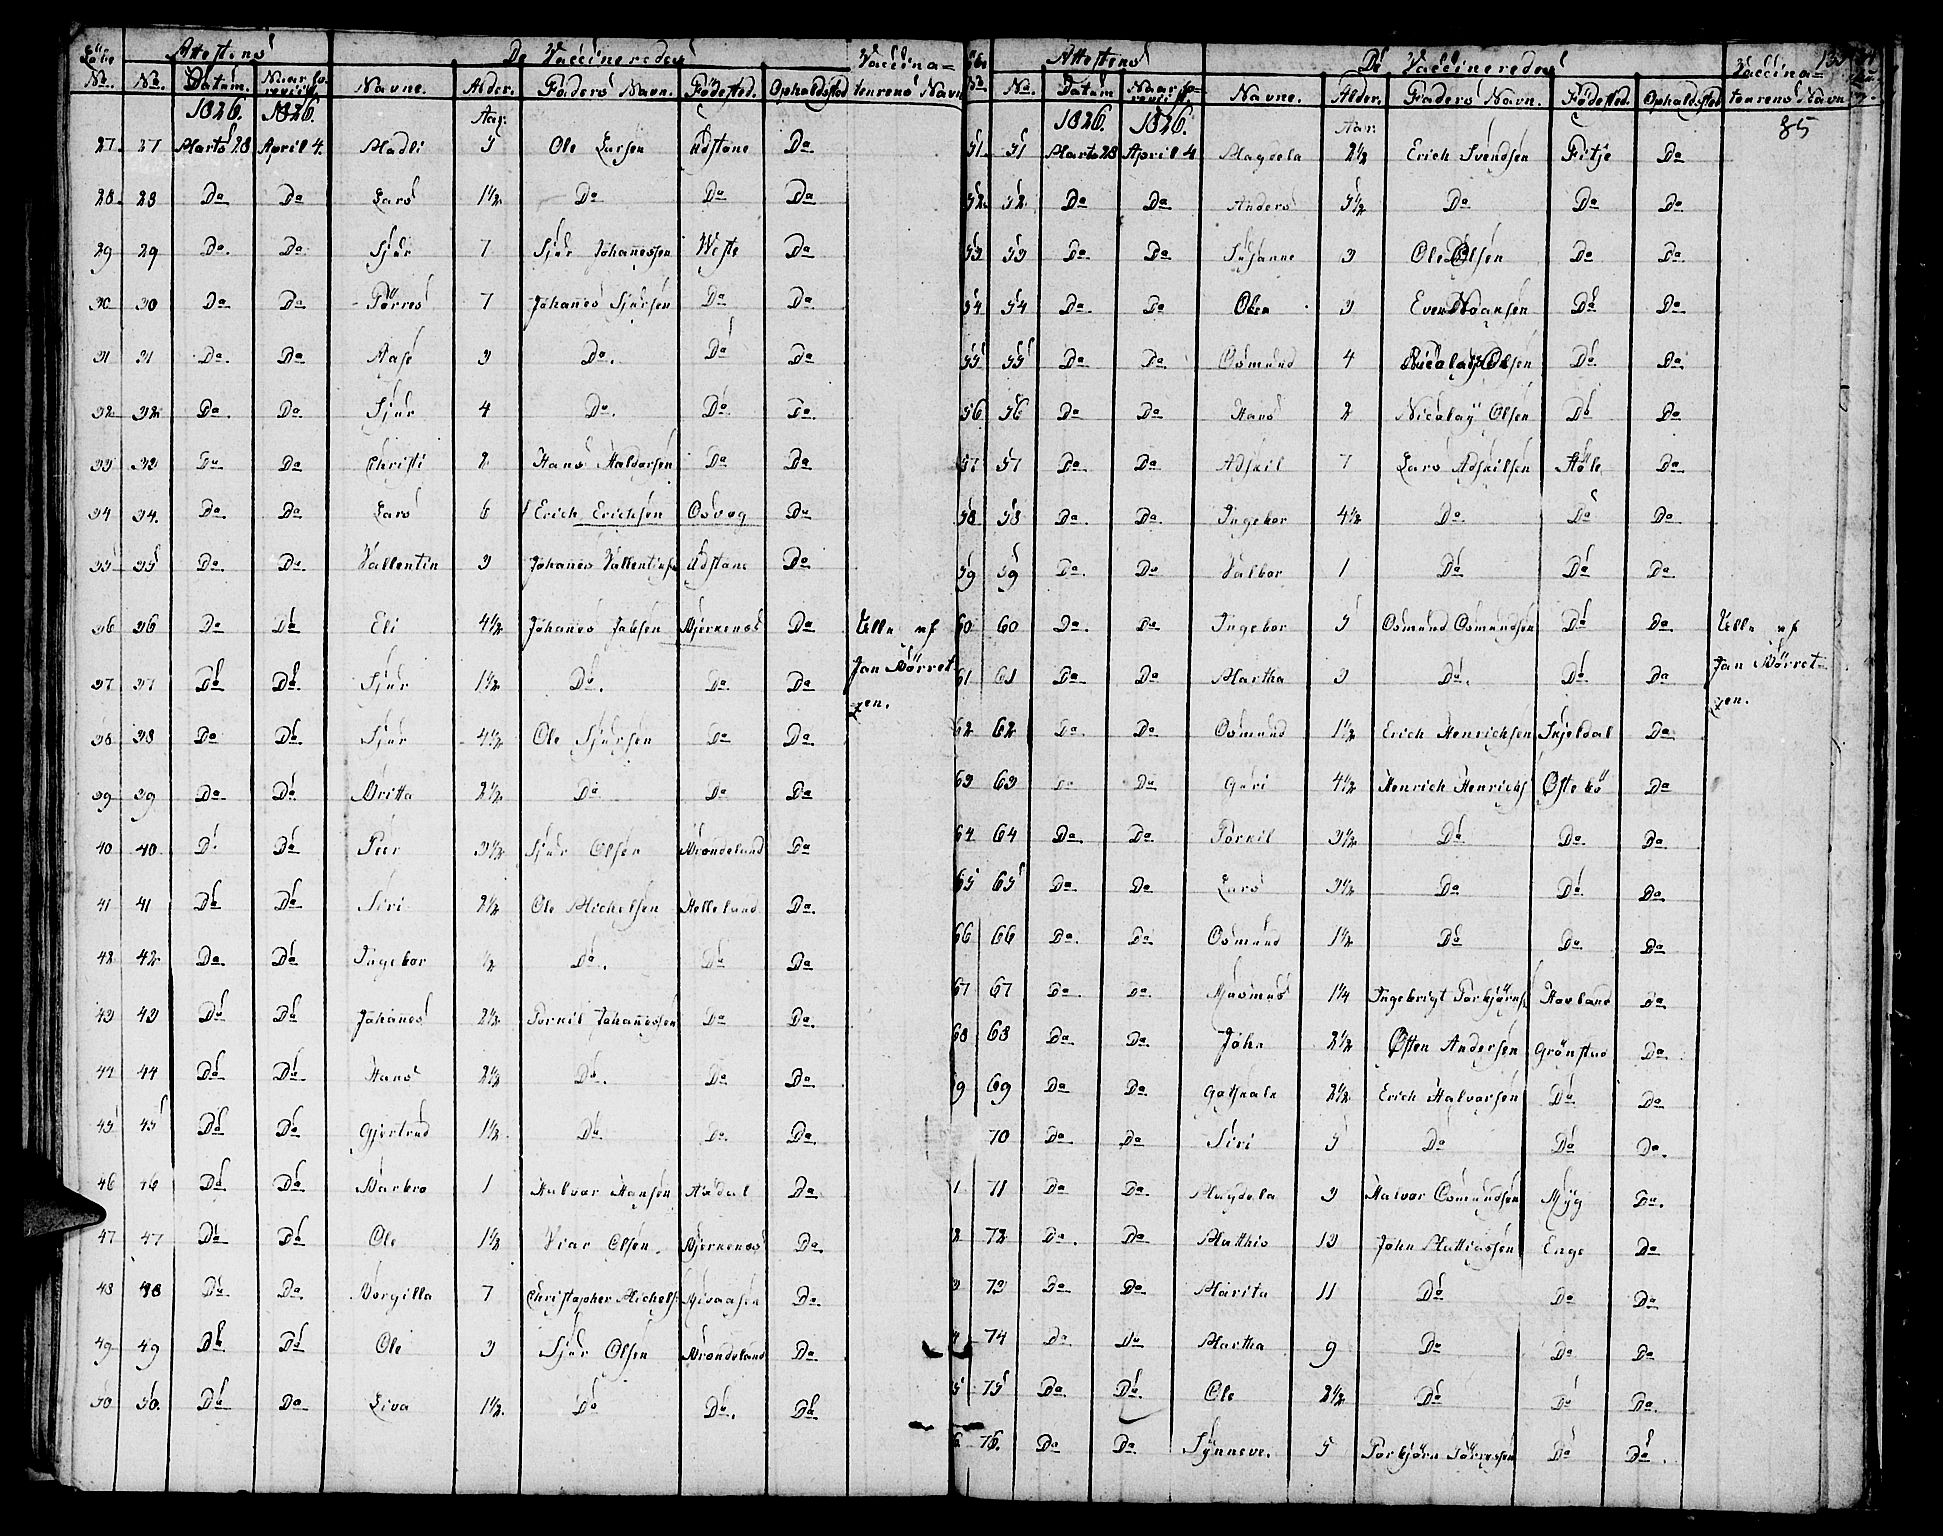 Attestens De Vaccineredes Vaccina=
No. No. Datum. Navne. Alder. Faders Navn. Födested. Opholdssted teurens Navn
1826. 1826. Aar.
27. 27 Marts 28 April 4. Madli 5 Ole Larsen Udstöne Do
28. 28 Do Do Lars 1½ Do Do Do
29 29 Do. Do. Sjur 7 Sjur Johannessen Do
30. 30 Do Do Törres 7 Johanes Sjursen Do Do
31 31 Do. Do Aase 3 Do. Do Do
32 32 Do. Do Sjur 4 Do. Do. Do.
33 33 Do Do Christi 2 Hans Haldorsen Do Do
34 34. Do Do Lars 6 Erich Erichsen Osvog Do
35 35 Do. Do Vallentin 3 Johanes Do
36 36 Do Do Eli 4½ Johanes Bjerkenes Do
37 37 Do Do. Sjur 1½ Do. Do. Do
38 38 Do Do. Sjur 4½ Ole Sjursen Do Do.
39 39 Do Do Britta 2½ Do Do Do
40 40 Do Do Peer 3½ Sjur Olsen Brondeland Do
41 41 Do Do Siri 2½ Ole Michelsen Helleland Do.
42 42 Do Do Ingebor ½ Do. Do Do
43 43 Do Do Johanes 2½ Torkil Johanessen Do Do.
44 44 Do Do. Hans 2½ Do. Do Do
45 45 Do Do Gjertrud 1½ Do Do. Do
46 46 Do Do Barbro 1 Halvor Hansen Do
47 47 Do Do Ole 1½ Viar Olsen. Bjerkenes Do
48 48 Do Do. Vorgilla 7 Christopher Michels Do
49 49 Do Do Ole 3 Sjur Olsen Brondeland Do
50 50. Do Do Liva 1½ Do Do. Do
Alle af
Jan Börret
zen.
Attestens De Vaccineredes Vaccina=
No. No. Datum Navne. Alder. Faders Navn. Födested. Opholdssted teurens Navn
1826. 1826. Aar. 85
51. 51 Marts 28 April 4 Magdela 2½ Erich Svendsen Fitje Do
52. 52 Do Do Anders 5½ Do Do Do
53 53 Do Do Susanne 3 Ole Olsen Do Do
54 54 Do Do 3 Do Do
55 55 Do Do. Osmund 4 Do Do
56 56 Do Do Hans 2 Nicolay Olsen Do Do
57 57 Do Do. Adskil 7 Lars Adskilsen Höle Do
58 58 Do. Do. Ingebor 4½ Do. Do Do
59 59 Do. Do Valbor 1 Do Do Do
60 60 Do. Do Ingebor 5 Osmund Osmundsen Do Do
61 61 Do Do Martha 3 Do. Do Do
62 62 Do Do Osmund 1½ Erich Henrichsen Skjeldal Do
63 63 Do Do Guri 4½ Henrich Henrichs Östebö Do
64 64 Do. Do Torkil 3½ Do Do. Do
65 65 Do Do Lars 3½ Do Do Do
66 66 Do. Do Osmund 1½ Do Do Do
67 67 Do. Do. Rasmus 1¼ Ingebrigt Torbjörns Havland Do
68 68 Do Do. John 2½ Östen Andersen Grönstad Do
9 69 Do Do Gotskalk 2½ Erich Halvorsen Do Do
70 Do Do Siri 5 Do Do Do.
1. 71 Do Do. Magdela 3 Halvor Osmundsen Do.
2 72 Do. Do Matthis 13 John Mattiassen Enge Do
3 73 Do. Do Marita 11 Do Do Do
4 74 Do Do Martha 9 Do Do Do
5 75 Do. Do. Ole 2½ Do Do Do.
6 76. Do Do. Synneve. 5 Torbjörn Törresen Do Do.
Alle af
Jan Börret=
zen.